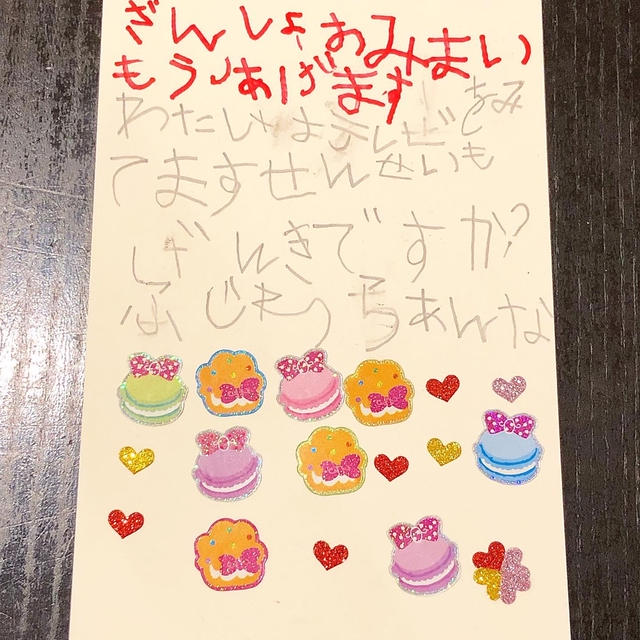 ざんしょおみまい
もうしあげます
わたしはテレビをみ
てますせんせいも
げんきですか?
ふじむらあんな